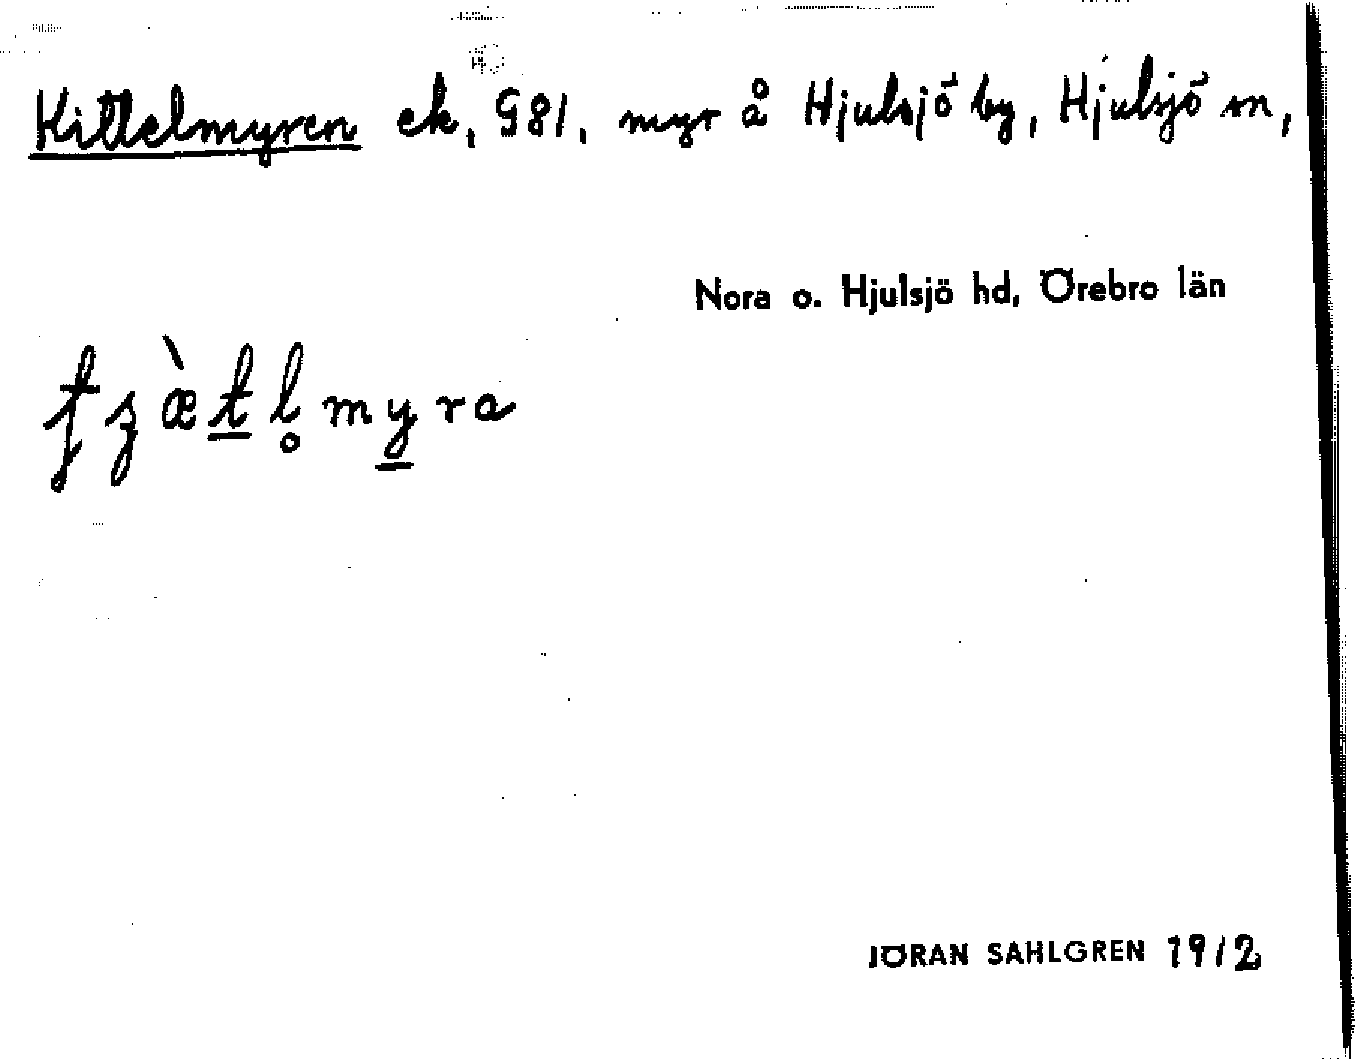 Kittelmyren ek, G81, myr å Hjulsjö by, Hjulsjö sn,
Nora o. Hjulsjö hd, Örebro län
JÖRAN SAHLGREN 1912